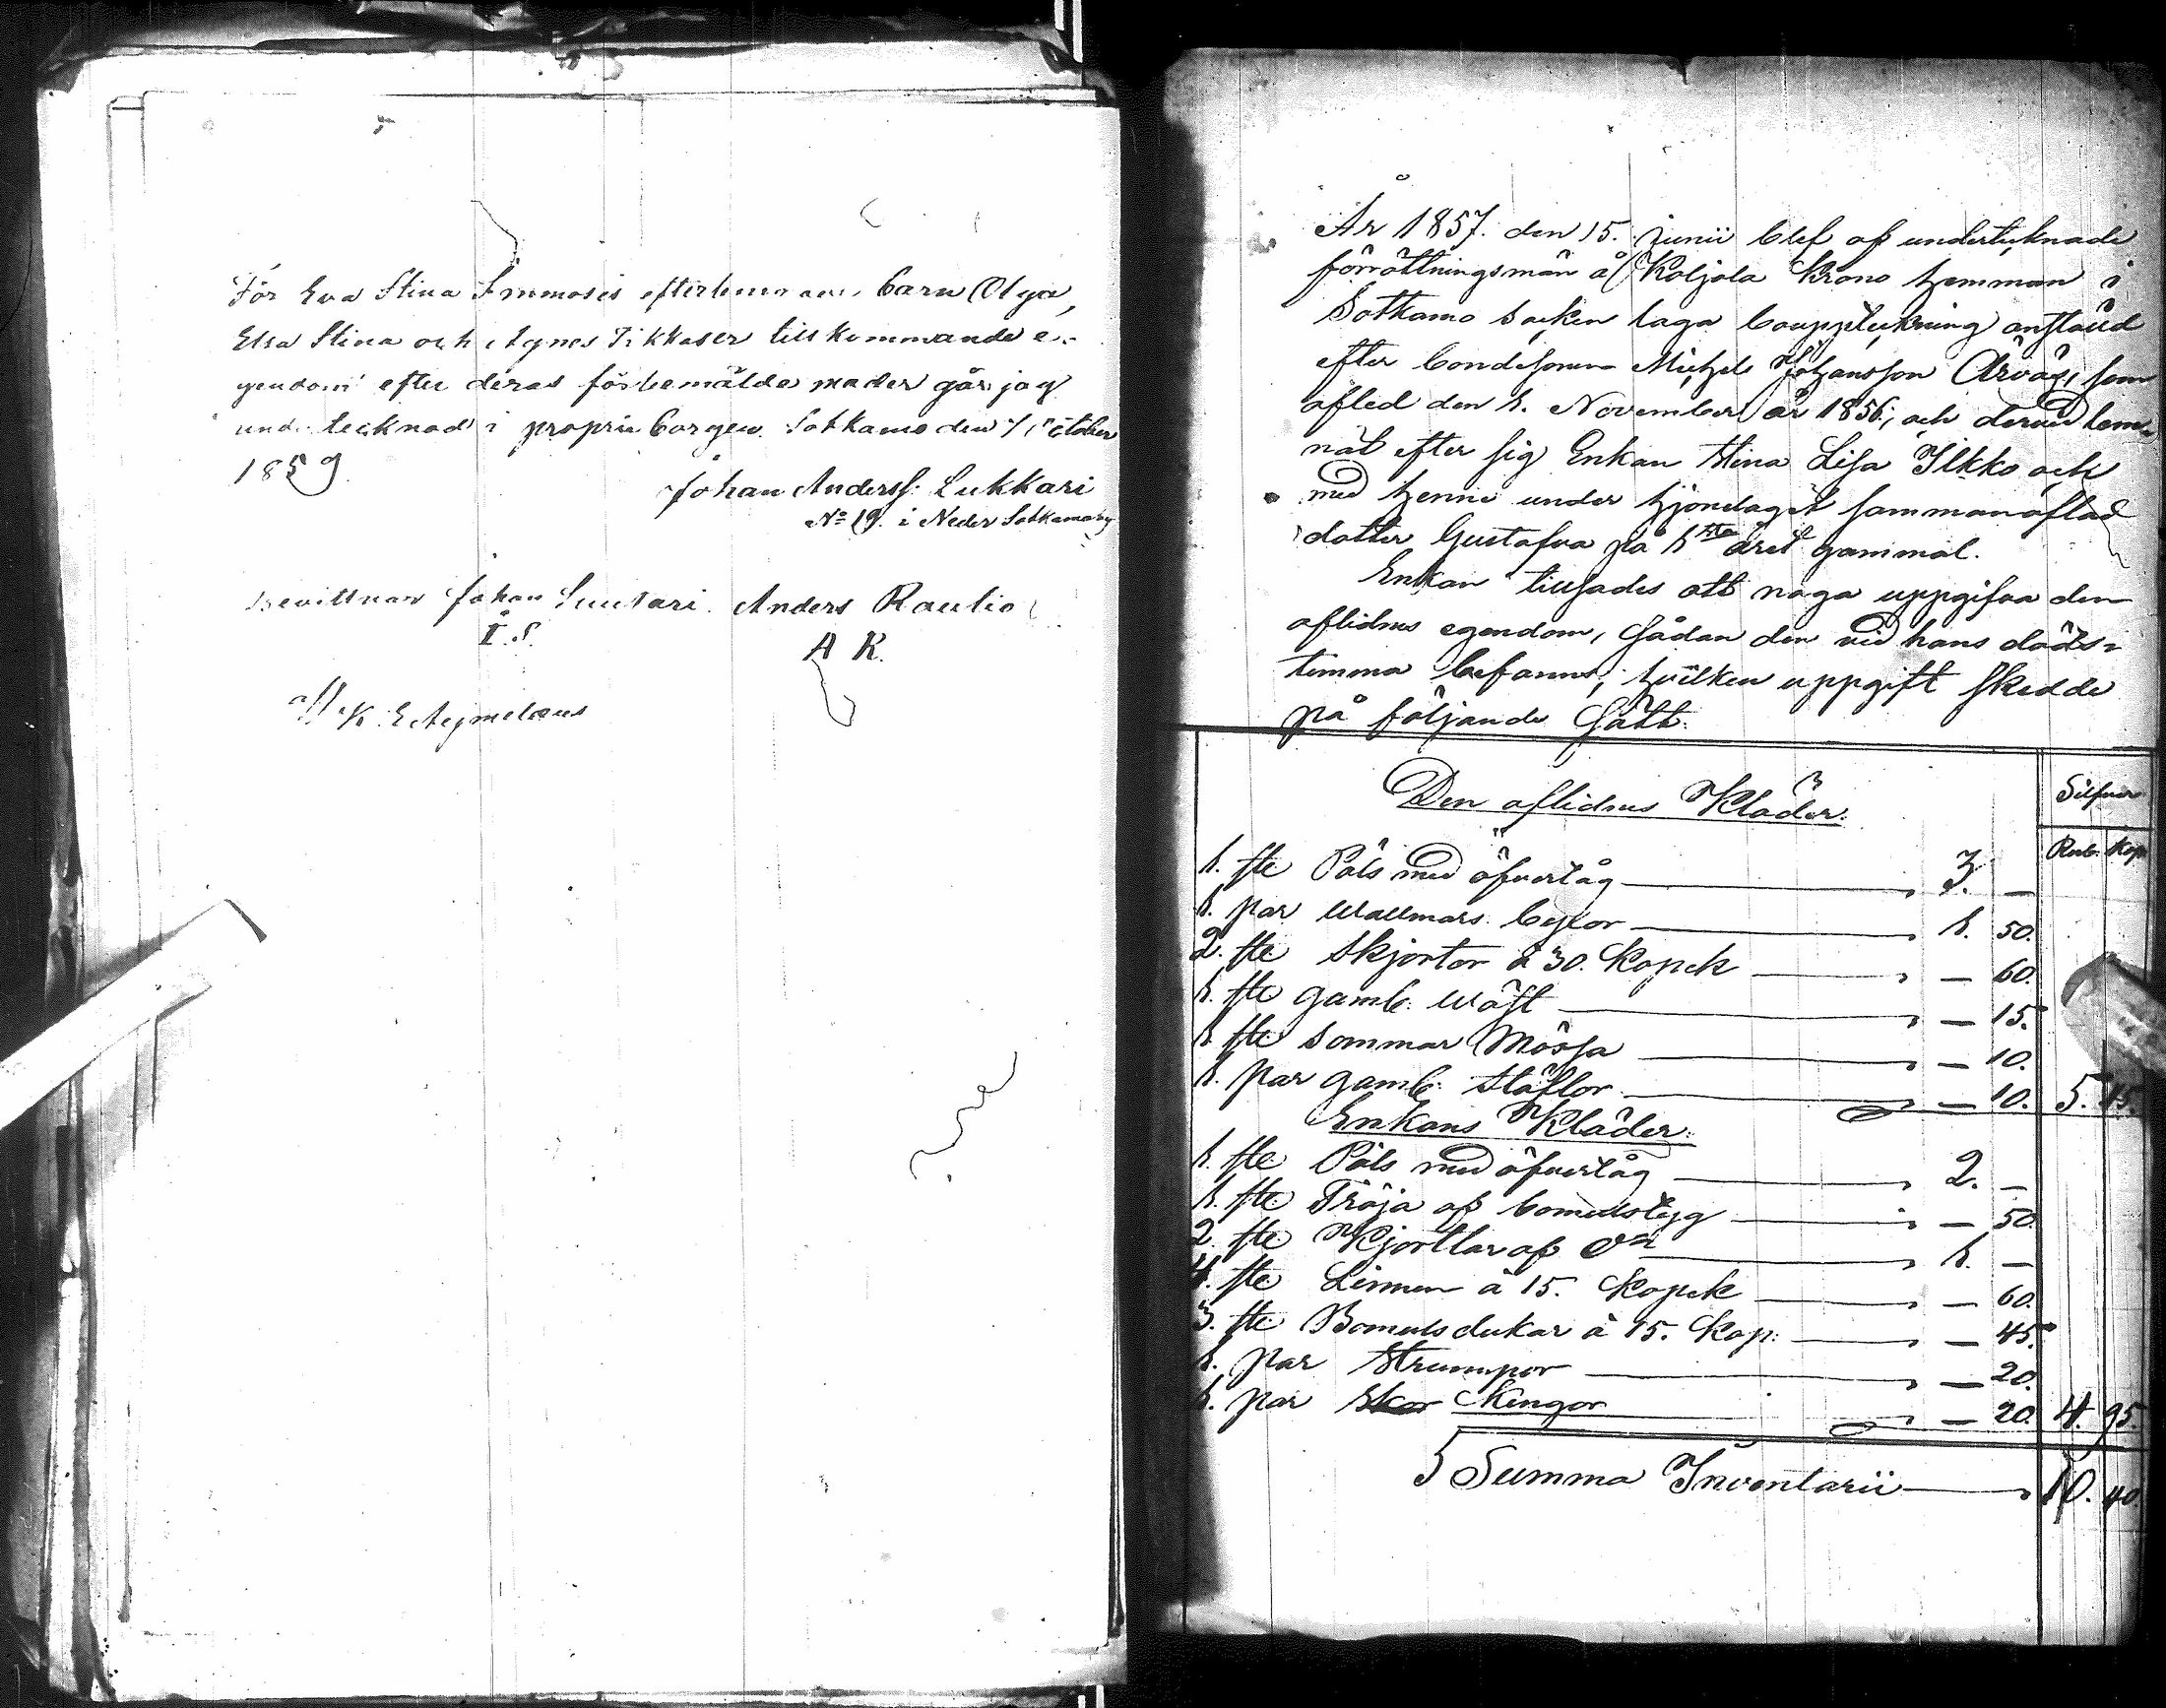 För Eva Stina Immosis efterlemnade barn Olga,
Elsa Stina och Agnes Tikkaser tillkommande e-
gendom efter deras förbemälde moder går jag
undertecknad i proprie borgen. Sotkamo den 1 October
1859.
Johan Anderss: Lukkari
No 19. i Neder Sotkamo by
Bevittnar Johan Suutari. Anders Raulio
I. S. A R.
K. E. Aejmelæus
År 1857. den 15. Junii blef af undertecknade
förrättningsmän å Koljola Krono hemman i
Sotkamo Socken laga bouppteckning anstäld
efter bondesonen Michel Johansson Arvås, som
afled den 1. November år 1856; och dervid lem-
nat efter sig Enkan Stina Lisa Ilkko och
med henne under hjonelaget sammanaflad
dotter Gustafva på 1sta året gammal.
Enkan tillsades att noga uppgifva den
aflidnes egendom, sådan den vid hans döds-
timma befanns; hvilken uppgift skedde
på följande sätt:
Den aflidnes Kläder: Silfver
Rub. Kop.
1. ste Päls med öfvertåg 3. —
1. par wallmars byxor 1. 50.
2. ste Skjortor à 30. Kopek — 60.
1. ste gaml: wäst — 15.
1. ste Sommar Mössa — 10.
1. par gaml: Stöflor — 10. 5. 45.
Enkans Kläder:
1. ste Päls med öfvertåg 2. —
1. ste Tröja af bomulstyg — 50.
2. ste Kjortlar af do 1. —
4. ste Linnen à 15. Kopek — 60.
3. ste Bomulsdukar à 15. Kop: — 45.
1. par Strumpor — 20.
1. par Skor Kengor — 20. 4. 95.
Summa Inventarii 10. 40